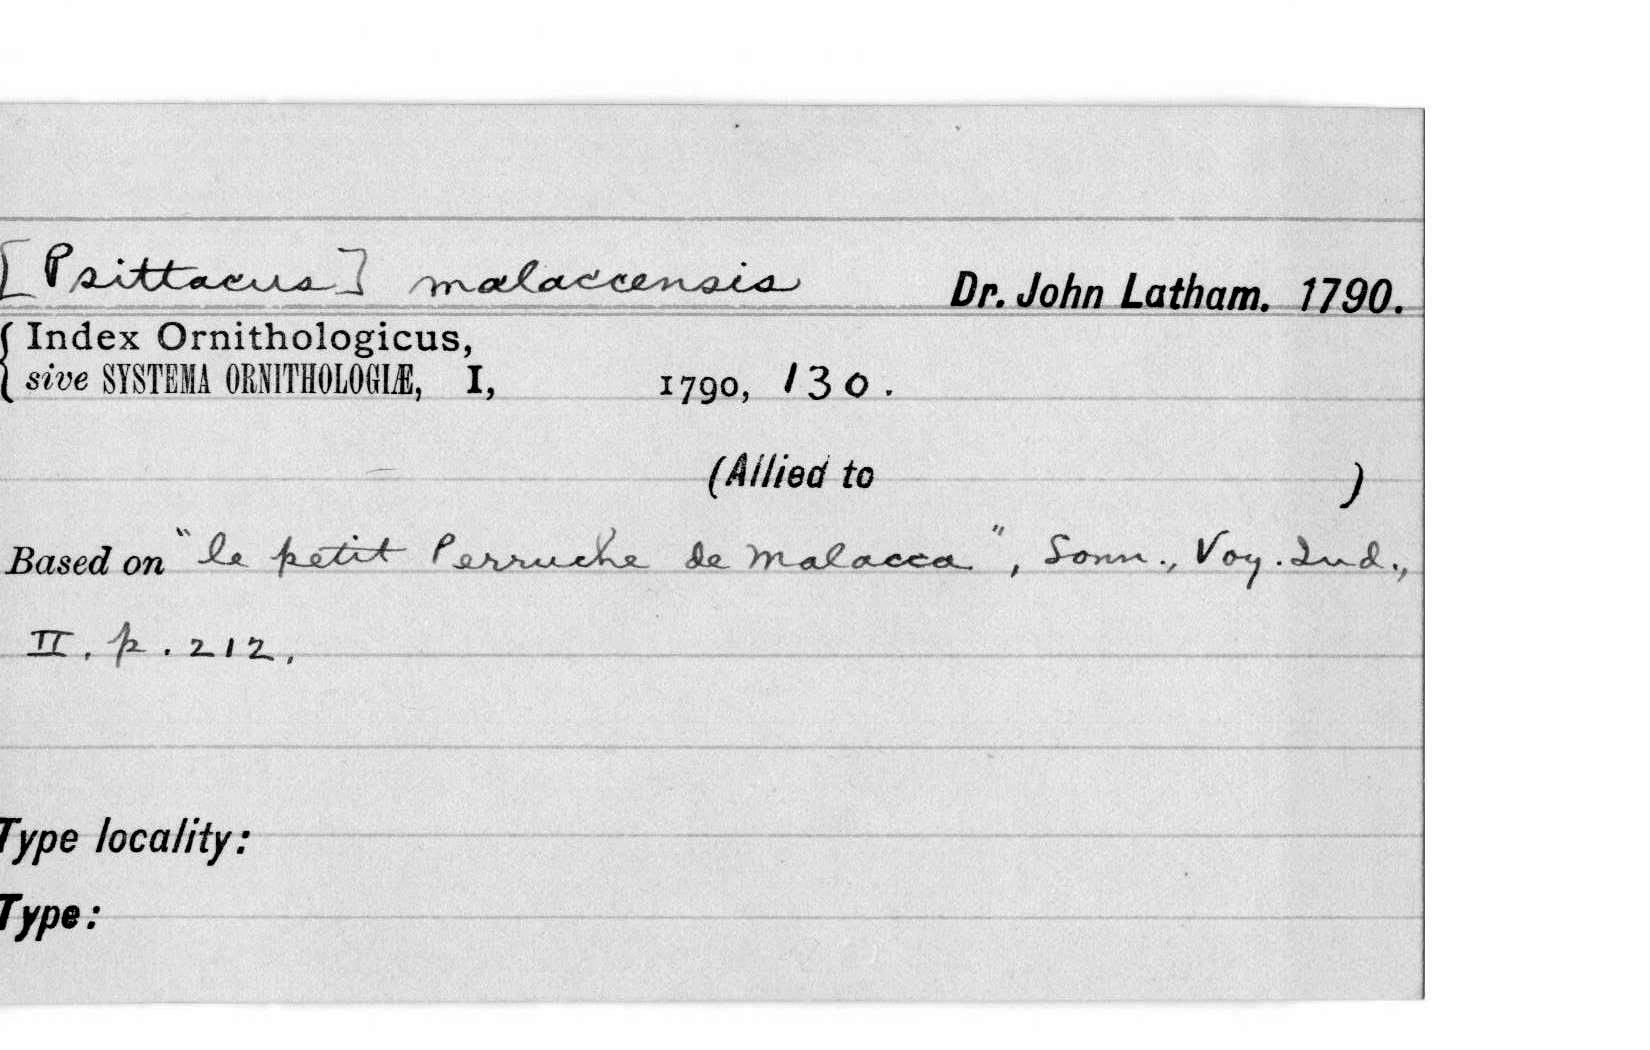 [Psittacus] malaccensis Dr. John Latham. 1790.
Index Ornithologicus,
sive SYSTEMA ORNITHOLOGIÆ, I, 1790, 130.
(Allied to )
Based on "le petit Perruche de Malacca", Sonn., Voy. Ind.,
II. p. 212.
Type locality:
Type: